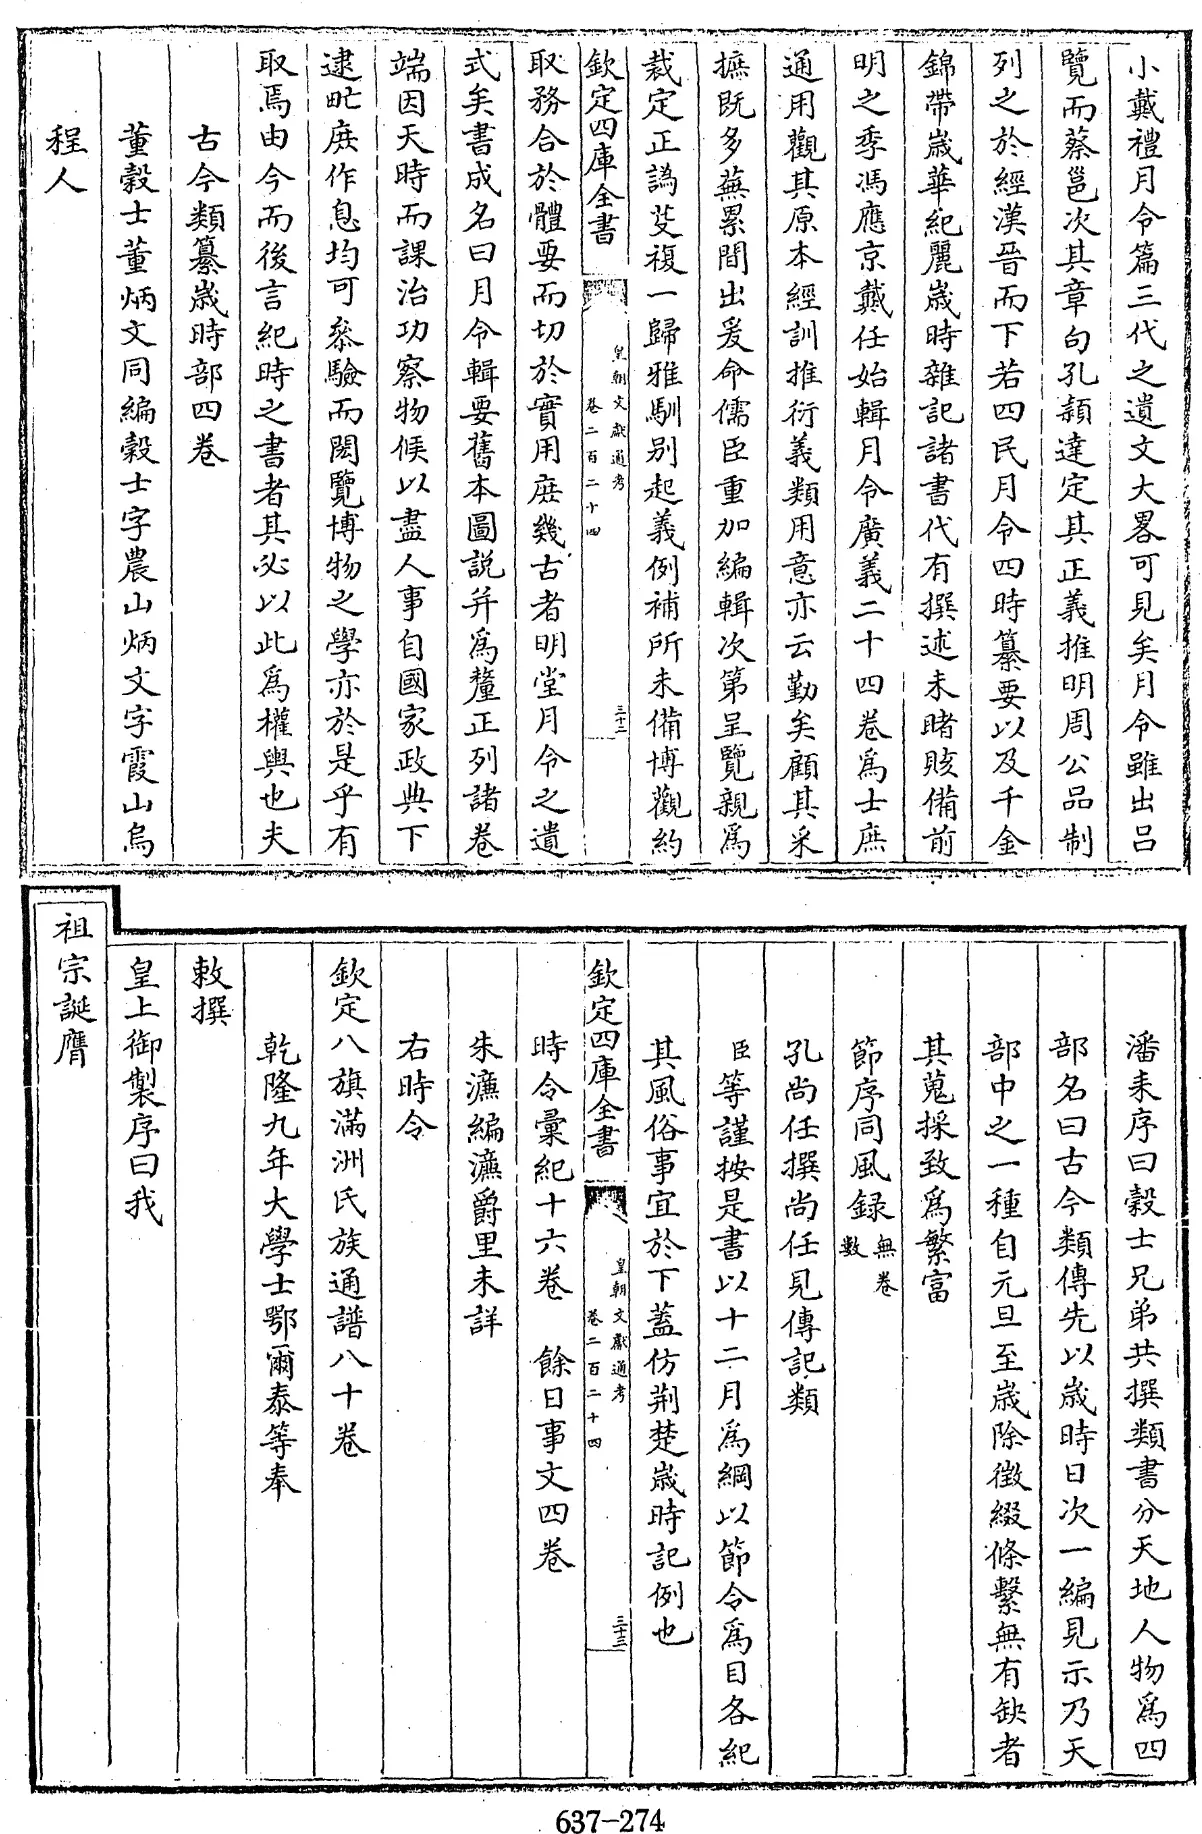 小戴禮月令篇三代之遺文大畧可見矣月令雖出呂
覽而蔡邕次其章句孔頴達定其正義推明周公品制
列之於經漢晉而下若四民月令四時纂要以及千金
錦帶歳華紀麗歳時雜記諸書代有撰述未睹賅備前
明之季馮應京戴任始輯月令廣義二十四卷為士庶
通用觀其原本經訓推衍義類用意亦云勤矣顧其采
摭既多蕪累間出爰命儒臣重加編輯次第呈覽親為
裁定正譌芟複一歸雅馴别起義例補所未備博觀約
欽定四庫全書
皇朝文獻通考
卷二百二十四
三十三
取務合於體要而切於實用庶幾古者明堂月令之遺
式矣書成名曰月令輯要舊本圖説并為釐正列諸卷
端因天時而課治功察物候以盡人事自國家政典下
逮甿庶作息均可叅驗而閎覽博物之學亦於是乎有
取焉由今而後言紀時之書者其必以此為權輿也夫
古今類纂歳時部四卷
董穀士董炳文同編穀士字農山炳文字霞山烏
程人
潘耒序曰穀士兄弟共撰類書分天地人物為四
部名曰古今類傳先以歳時日次一編見示乃天
部中之一種自元旦至歳除徴綴條繫無有缺者
其蒐採致為繁富
節序同風録無卷數
孔尚任撰尚任見傳記類
臣等謹按是書以十二月為綱以節令為目各紀
其風俗事宜於下蓋仿荆楚歳時記例也
欽定四庫全書
皇朝文獻通考
卷二百二十四
三十三
時令彙紀十六卷 餘日事文四卷
朱濂編濂爵里未詳
右時令
欽定八旗滿洲氏族通譜八十卷
乾隆九年大學士鄂爾泰等奉
敕撰
皇上御製序曰我
祖宗誕膺
637-274